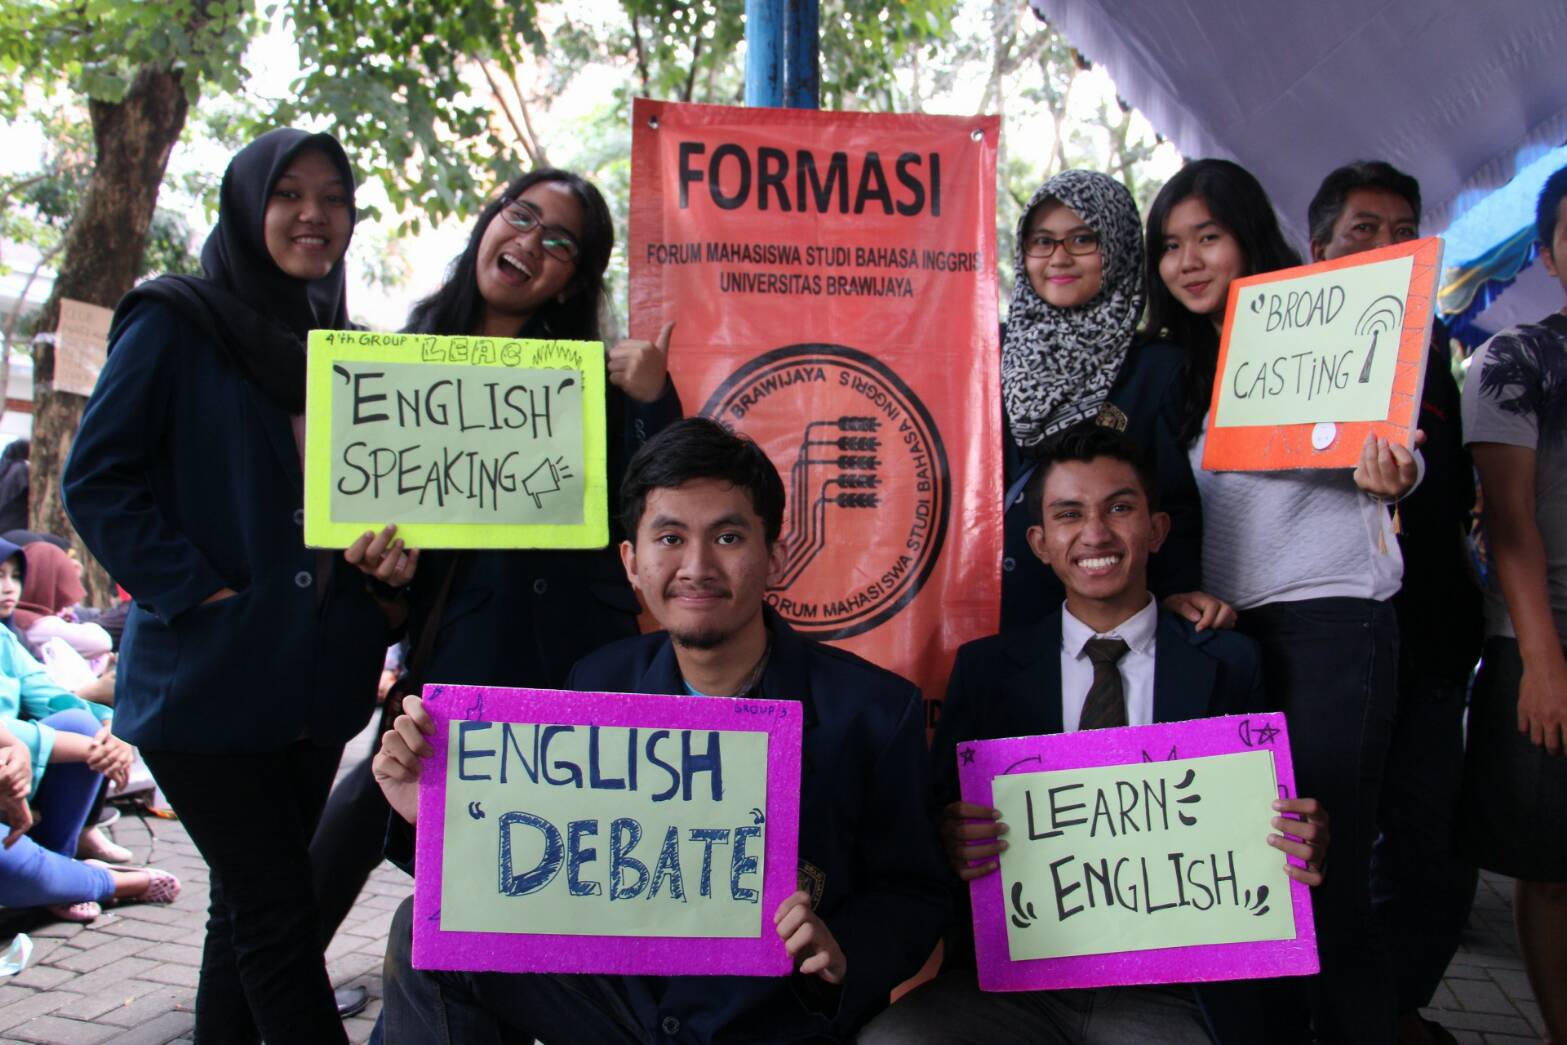 FORMASI
FORUM MAHASISWA STUDI BAHASA INGGRIS
UNIVERSITAS BRAWIJAYA
BRAWIJAYA
FORUM MAHASISWA STUDI BAHASA INGGRIS
4'th GROUP
'ENGLISH'
SPEAKING
"BROAD
CASTING
GROUP 3
ENGLISH
"DEBATE"
LEARN
ENGLISH